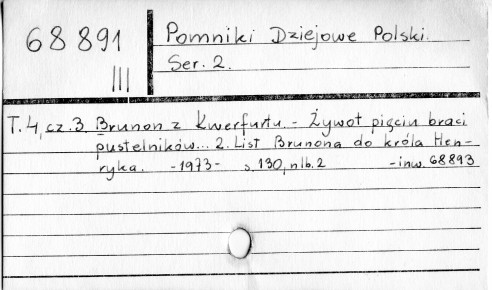 68891
III
Pomniki Dziejowe Polski.
Ser. 2.
T. 4, cz. 3. Brunon z Kwerfurtu. - Żywot pięciu braci
pustelników... 2. List Brunona do króla Hen-
ryka. -1973- s. 130, nlb. 2 -inw. 68893